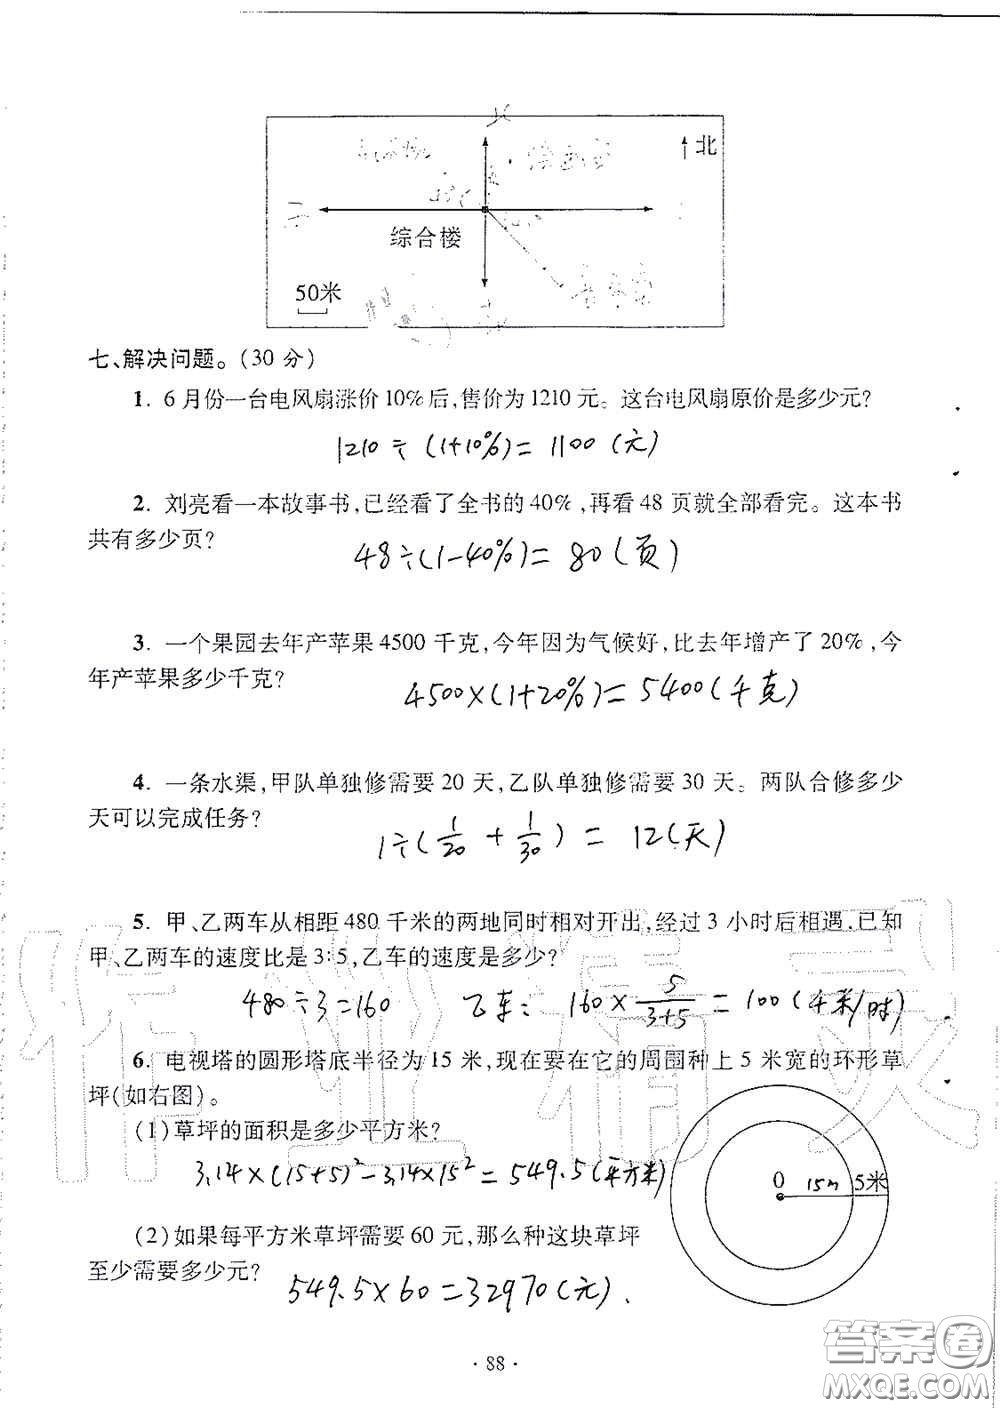 北
综合楼
50米
七、解决问题。(30 分)
1. 6 月份一台电风扇涨价 10% 后,售价为 1210 元。这台电风扇原价是多少元?
1210 ÷ (1+10%) = 1100 (元)
2. 刘亮看一本故事书,已经看了全书的 40% ,再看 48 页就全部看完。这本书
共有多少页?
48÷(1-40%) = 80 (页)
3. 一个果园去年产苹果 4500 千克,今年因为气候好,比去年增产了 20% ,今
年产苹果多少千克?
4500×(1+20%) = 5400(千克)
4. 一条水渠,甲队单独修需要 20 天,乙队单独修需要 30 天。两队合修多少
天可以完成任务?
1÷(1/20 + 1/30) = 12(天)
5. 甲、乙两车从相距 480 千米的两地同时相对开出,经过 3 小时后相遇,已知
甲、乙两车的速度比是 3∶5,乙车的速度是多少?
480÷3=160 乙车: 160×5/(3+5) = 100(千米/时)
6. 电视塔的圆形塔底半径为 15 米,现在要在它的周围种上 5 米宽的环形草
坪(如右图)。
(1)草坪的面积是多少平方米?
3.14×(15+5)²-3.14×15²=549.5(平方米)
O 15m 5米
(2)如果每平方米草坪需要 60 元,那么种这块草坪
至少需要多少元?
549.5×60=32970(元).
· 88 ·
作业精灵
答案圈
MXQE.COM